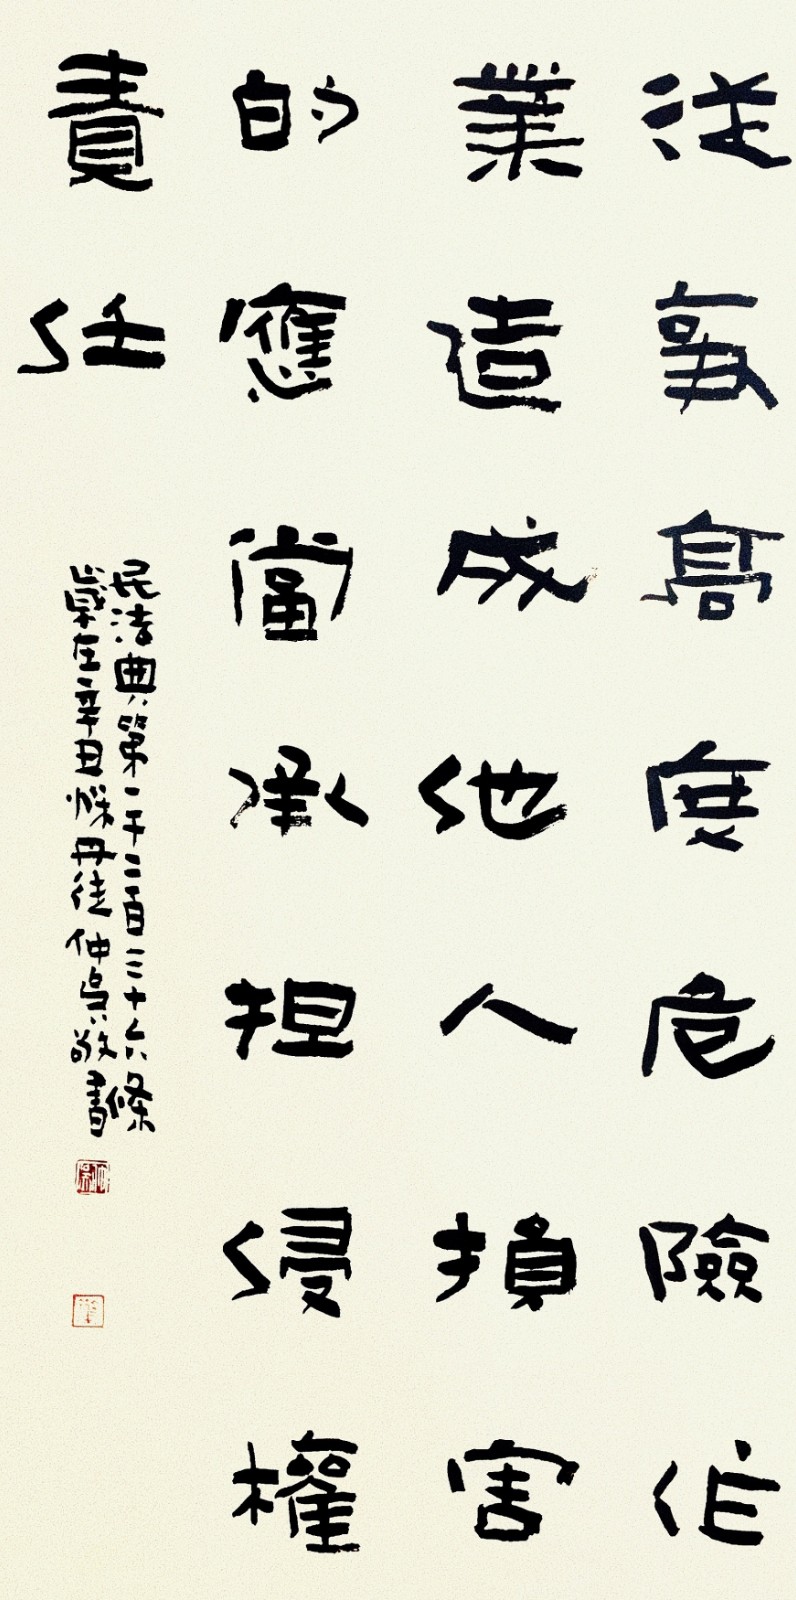 從事高度危險作
業造成他人損害
的應當承担侵權
責任
民法典第一千二百三十六條
歲在辛丑秌丹徒仲貞敬書